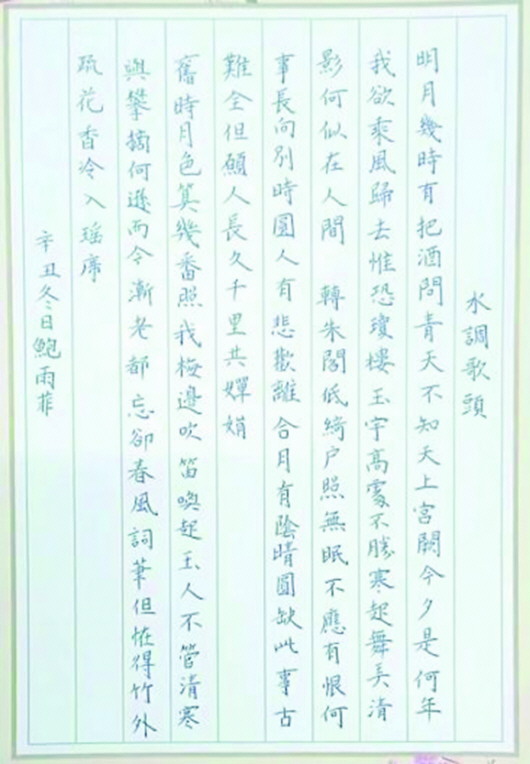 水調歌頭
明月幾時有把酒問青天不知天上宮闕今夕是何年
我欲乘風歸去惟恐瓊樓玉宇高處不勝寒起舞弄清
影何似在人間　轉朱閣低綺户照無眠不應有恨何
事長向別時圓人有悲歡離合月有陰晴圓缺此事古
難全但願人長久千里共嬋娟
舊時月色算幾番照我梅邊吹笛喚起玉人不管清寒
與攀摘何遜而今漸老都忘卻春風詞筆但怪得竹外
疏花香冷入瑤席
辛丑冬日鮑雨菲